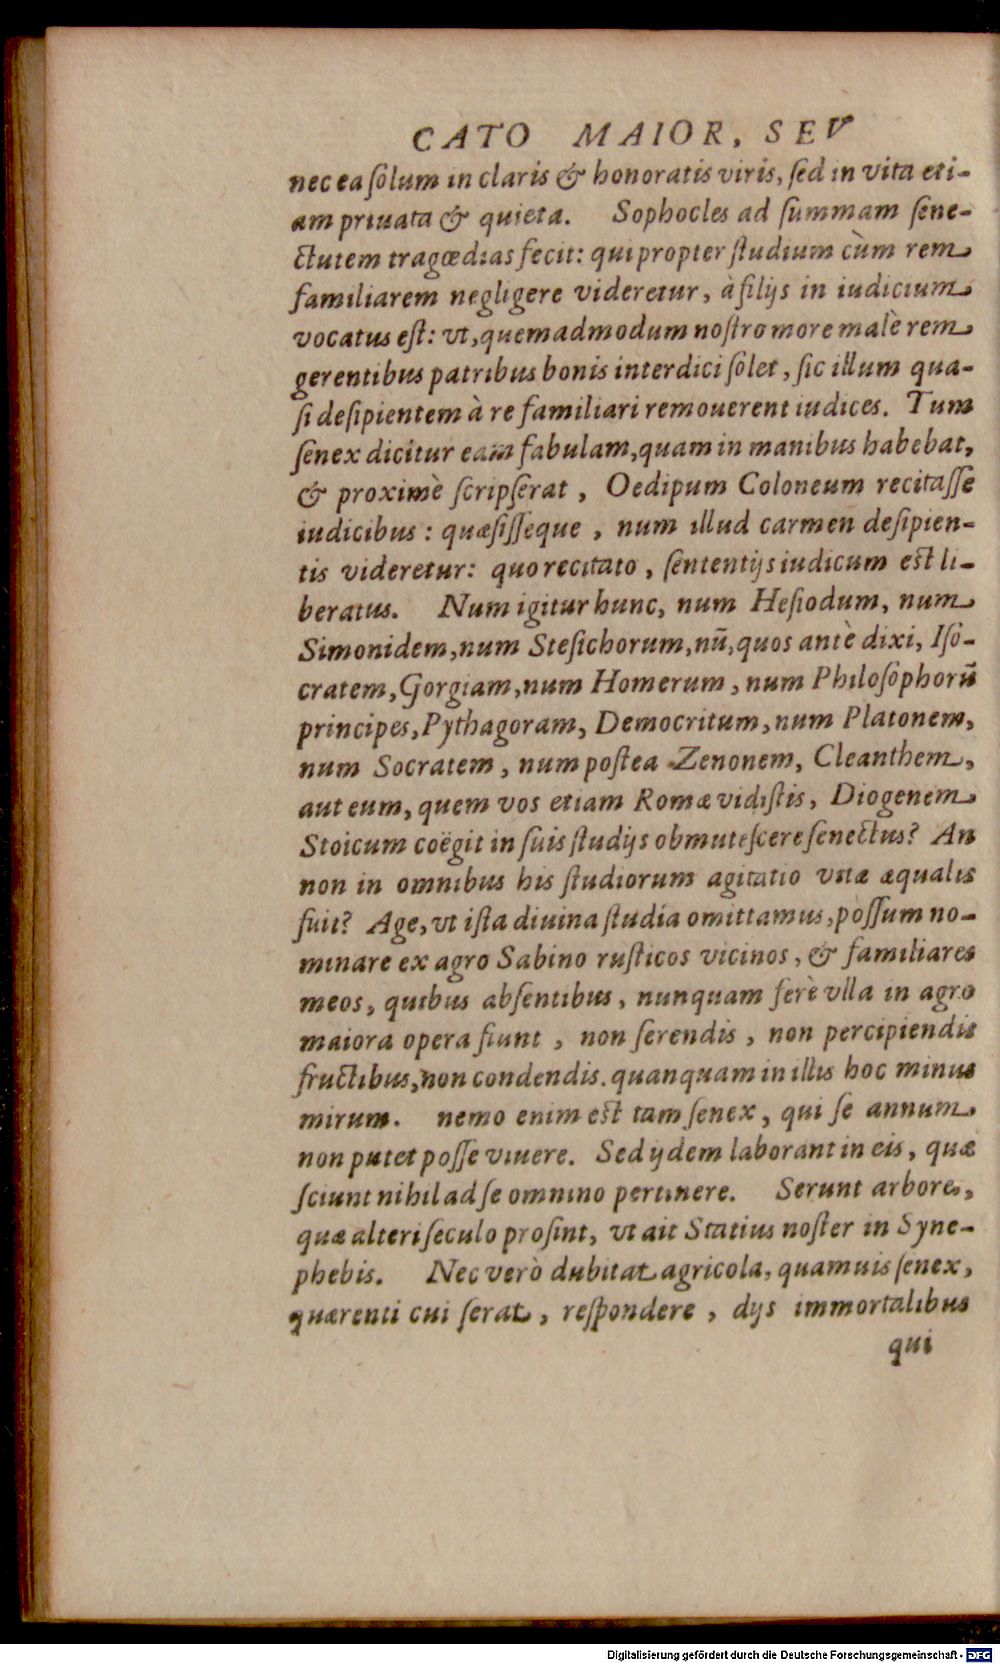 CATO MAIOR, SEV
nec ea ſolum in claris & honoratis viris, ſed in vita eti-
am priuata & quieta. Sophocles ad ſummam ſene-
ctutem tragœdias fecit: qui propter ſtudium cùm rem
familiarem negligere videretur, à filijs in iudicium
vocatus eſt: vt, quemadmodum noſtro more malè rem
gerentibus patribus bonis interdici ſolet, ſic illum qua-
ſi deſipientem à re familiari remouerent iudices. Tum
ſenex dicitur eam fabulam, quam in manibus habebat,
& proximè ſcripſerat, Oedipum Coloneum recitaſſe
iudicibus: quæſiſſeque, num illud carmen deſipien-
tis videretur: quo recitato, ſententijs iudicum eſt li-
beratus. Num igitur hunc, num Heſiodum, num
Simonidem, num Steſichorum, nū, quos antè dixi, Iſo-
cratem, Gorgiam, num Homerum, num Philoſophorū
principes, Pythagoram, Democritum, num Platonem,
num Socratem, num poſtea Zenonem, Cleanthem,
aut eum, quem vos etiam Romæ vidiſtis, Diogenem
Stoicum coëgit in ſuis ſtudijs obmuteſcere ſenectus? An
non in omnibus his ſtudiorum agitatio vitæ æqualis
fuit? Age, vt iſta diuina ſtudia omittamus, poſſum no-
minare ex agro Sabino ruſticos vicinos, & familiares
meos, quibus abſentibus, nunquam ferè vlla in agro
maiora opera fiunt, non ſerendis, non percipiendis
fructibus, non condendis. quanquam in illis hoc minus
mirum. nemo enim eſt tam ſenex, qui ſe annum
non putet poſſe viuere. Sed ijdem laborant in eis, quæ
ſciunt nihil ad ſe omnino pertinere. Serunt arbores,
quæ alteri ſeculo proſint, vt ait Statius noſter in Syne-
phebis. Nec verò dubitat agricola, quamuis ſenex,
quærenti cui ſerat, reſpondere, dijs immortalibus
qui
Digitalisierung gefördert durch die Deutsche Forschungsgemeinschaft - DFG